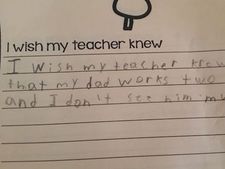 I wish my teacher knew
I wish my teacher knew
that my dad works two
and I don't see him mu